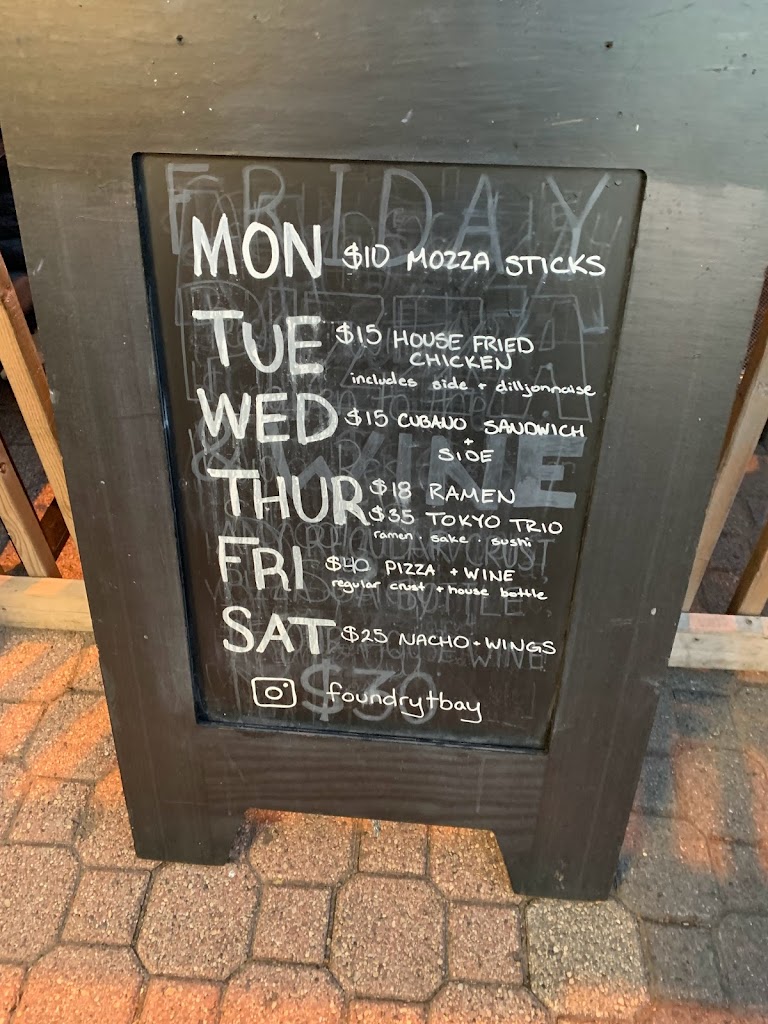 FRIDAY
MON $10 MOZZA STICKS
TUE $15 HOUSE FRIED
CHICKEN
includes side + dilljonnaise
WED $15 CUBANO SANDWICH
+
SIDE
& WINE
THUR $18 RAMEN
$35 TOKYO TRIO
ramen · sake · sushi
FRI $40 PIZZA + WINE
regular crust + house bottle
SAT $25 NACHO + WINGS
$30
foundrytbay